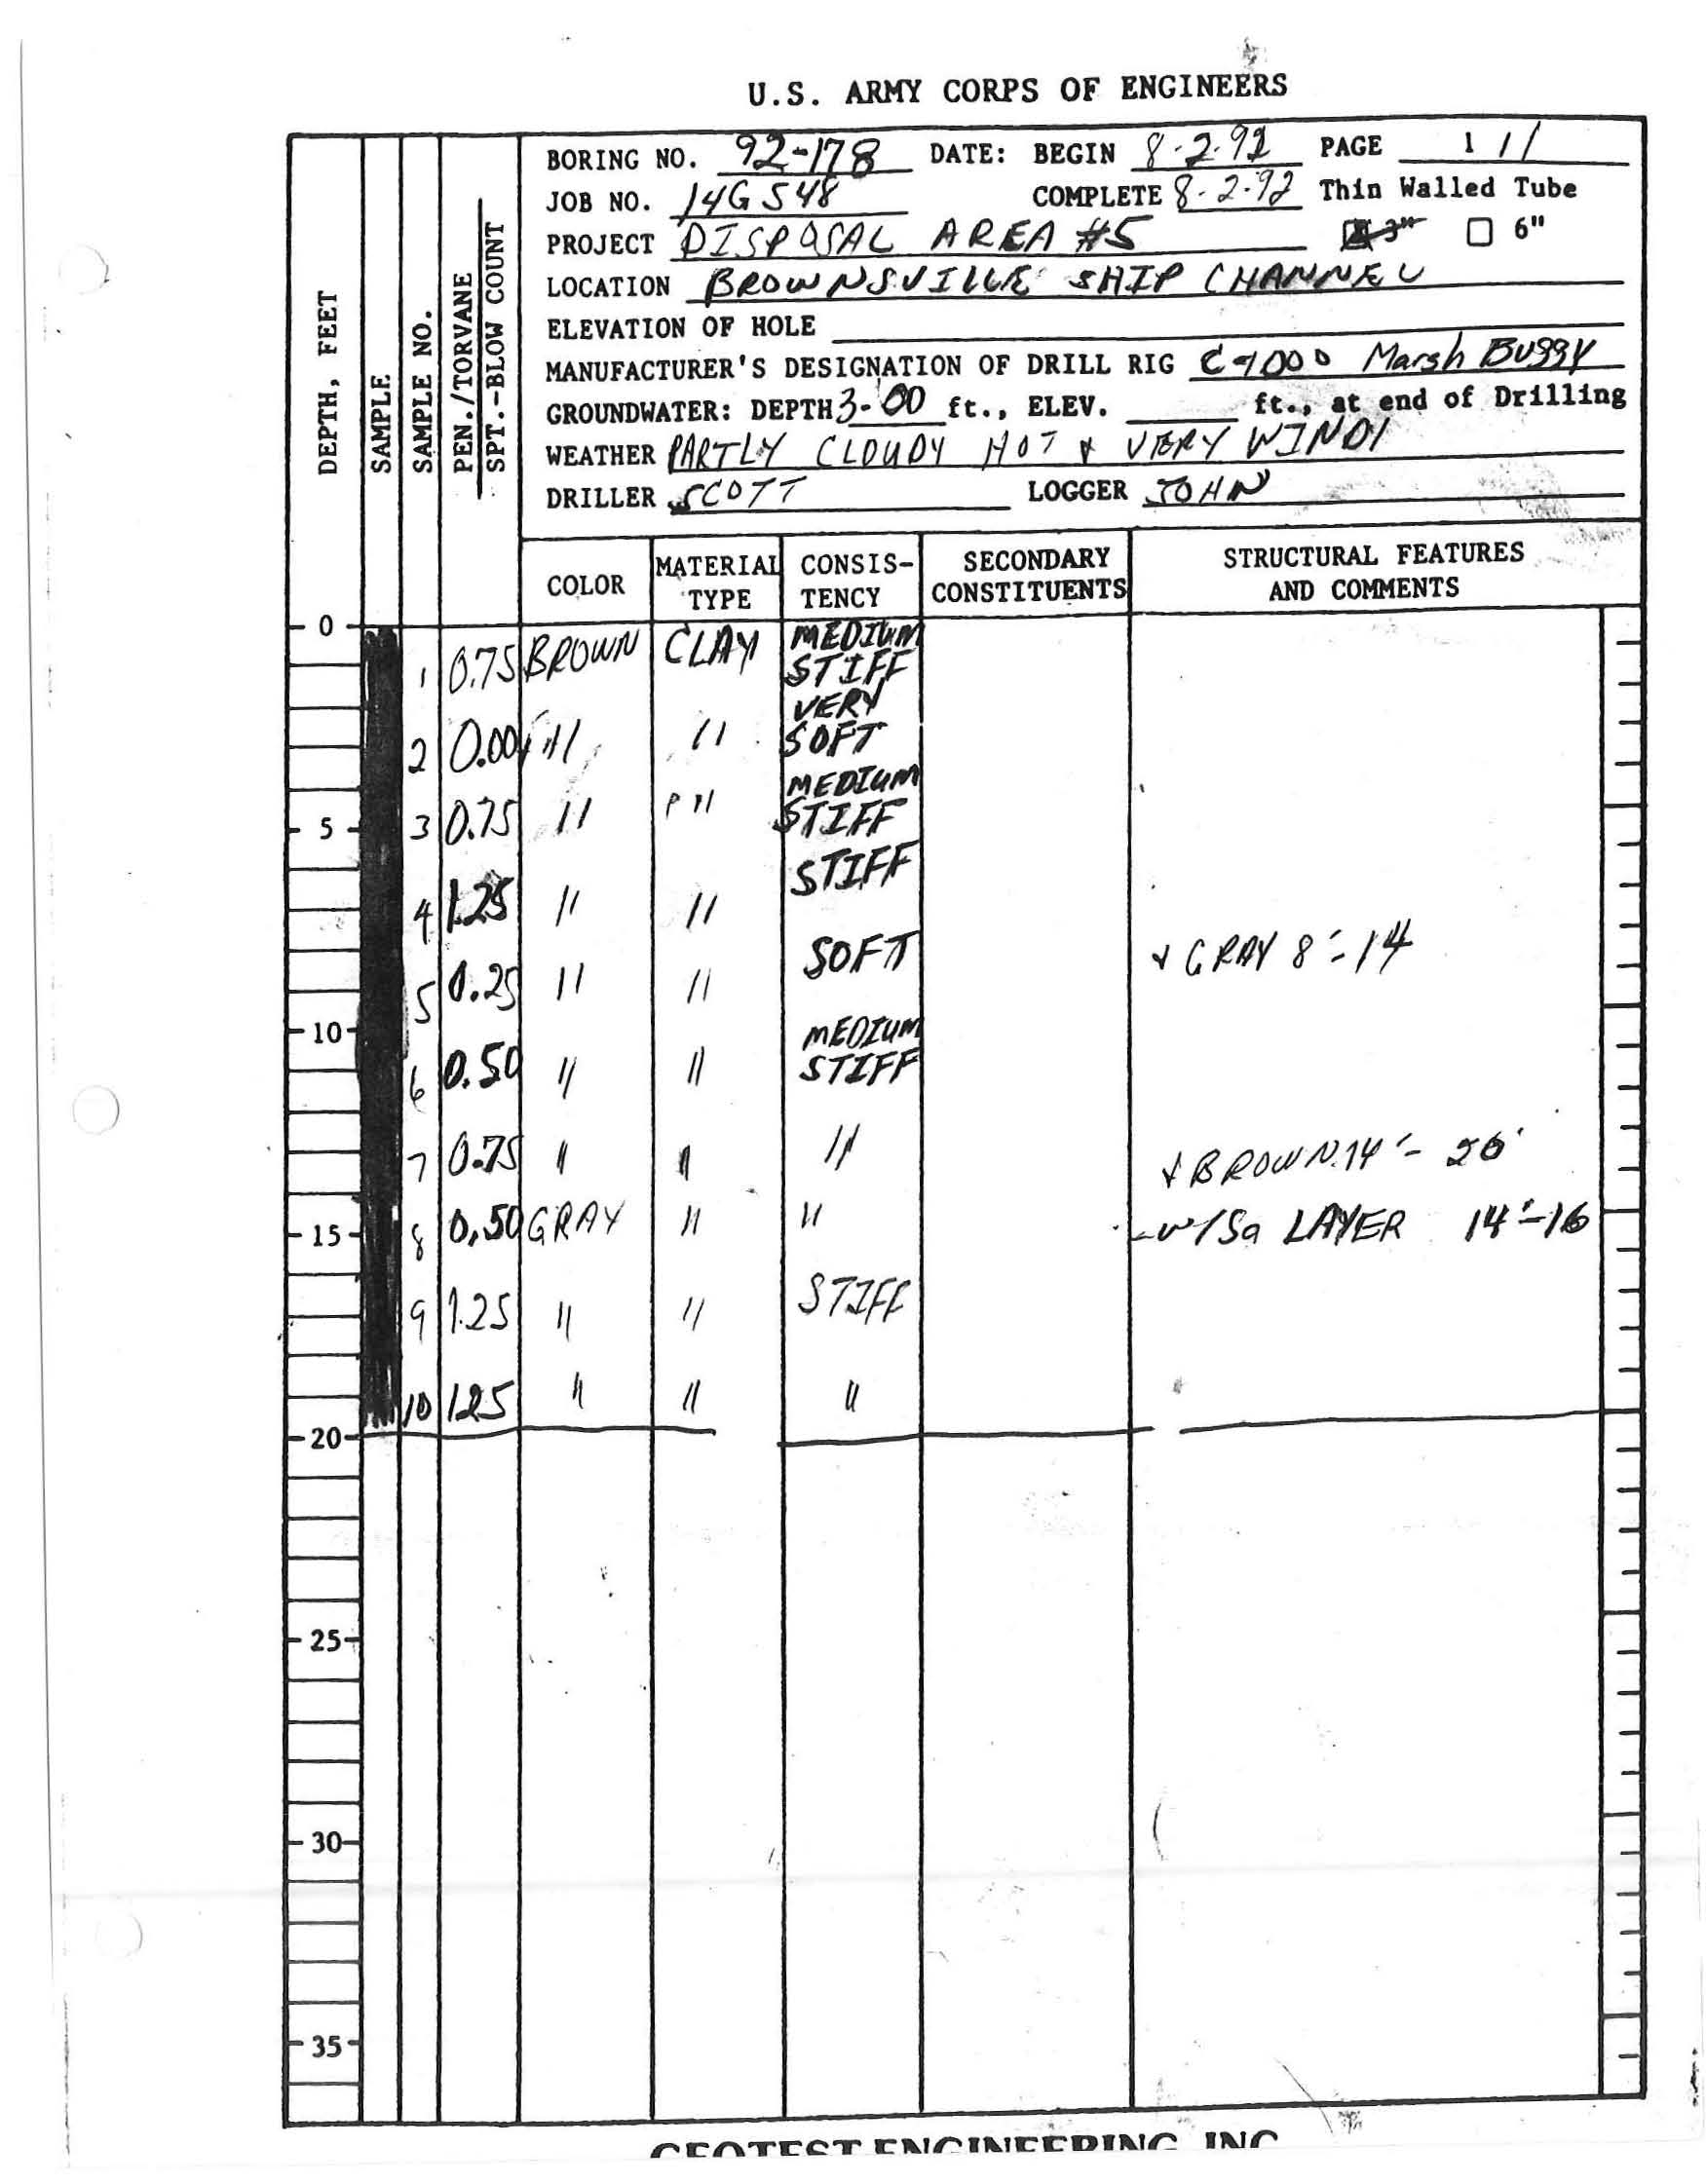 U.S. ARMY CORPS OF ENGINEERS
BORING NO. 92-178 DATE: BEGIN 8-2-92 PAGE 1 / 1
JOB NO. 14G548 COMPLETE 8-2-92 Thin Walled Tube
PROJECT DISPOSAL AREA #5 3" 6"
LOCATION BROWNSVILLE SHIP CHANNEL
ELEVATION OF HOLE
MANUFACTURER'S DESIGNATION OF DRILL RIG Marsh Buggy
GROUNDWATER: DEPTH 3.00 ft., ELEV. ft., at end of Drilling
WEATHER PARTLY CLOUDY HOT & VERY WINDY
DRILLER SCOTT LOGGER JOHN
DEPTH, FEET
SAMPLE
SAMPLE NO.
PEN./TORVANE
SPT.-BLOW COUNT
COLOR MATERIAL TYPE CONSIS-TENCY SECONDARY CONSTITUENTS STRUCTURAL FEATURES AND COMMENTS
0
1 0.75 BROWN CLAY MEDIUM STIFF
2 0.00 " " VERY SOFT
5 3 0.75 " " MEDIUM STIFF
4 1.25 " " STIFF
5 0.25 " " SOFT & GRAY 8'-14
10
6 0.50 " " MEDIUM STIFF
7 0.75 " " " & BROWN 14'- 20'
15 8 0.50 GRAY " " - w/Sa LAYER 14'-16
9 1.25 " " STIFF
10 1.25 " " "
20
25
30
35
GEOTEST ENGINEERING, INC.